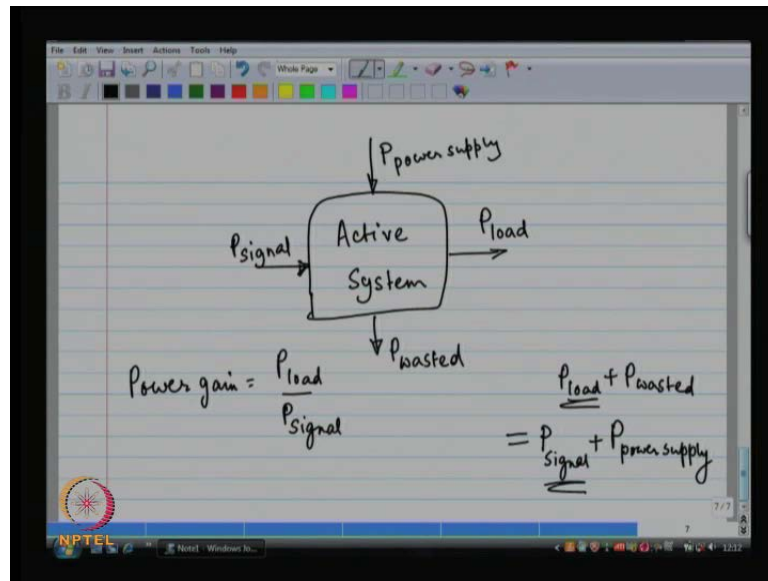 File Edit View Insert Actions Tools Help
Whole Page
B I
P power supply
P signal
Active
System
P load
P wasted
Power gain = P load / P signal
P load + P wasted
= P signal + P power supply
7/7
7
NPTEL
Note1 - Windows Jo...
12:12